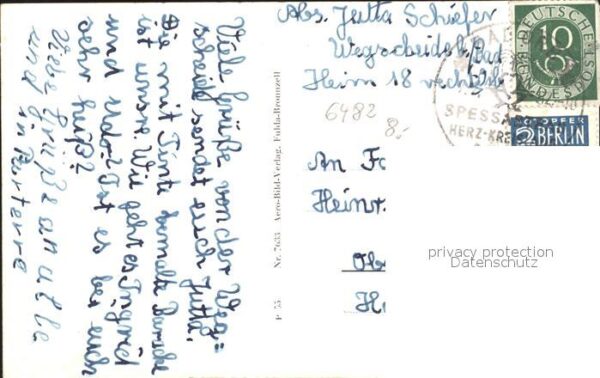 Viele Grüße von der Weg=
scheide sendet euch Jutta.
Die mit Tinte bemalte Baracke
ist unsre. Wie geht es Ingrid
und Udo? Ist es bei euch
sehr heiß?
Viele Grüße an alle
und in Parterre
P 55 Nr. 7633 Aero-Bild-Verlag, Fulda-Bronnzell
Abs. Jutta Schiefer
Wegscheide b/Bad
Heim 18
6482
8,-
An
Heinr.
SPESSA
HERZ-KRE
DEUTSCHE
BUNDESPOST
10
NOTOPFER
2 BERLIN
privacy protection
Datenschutz